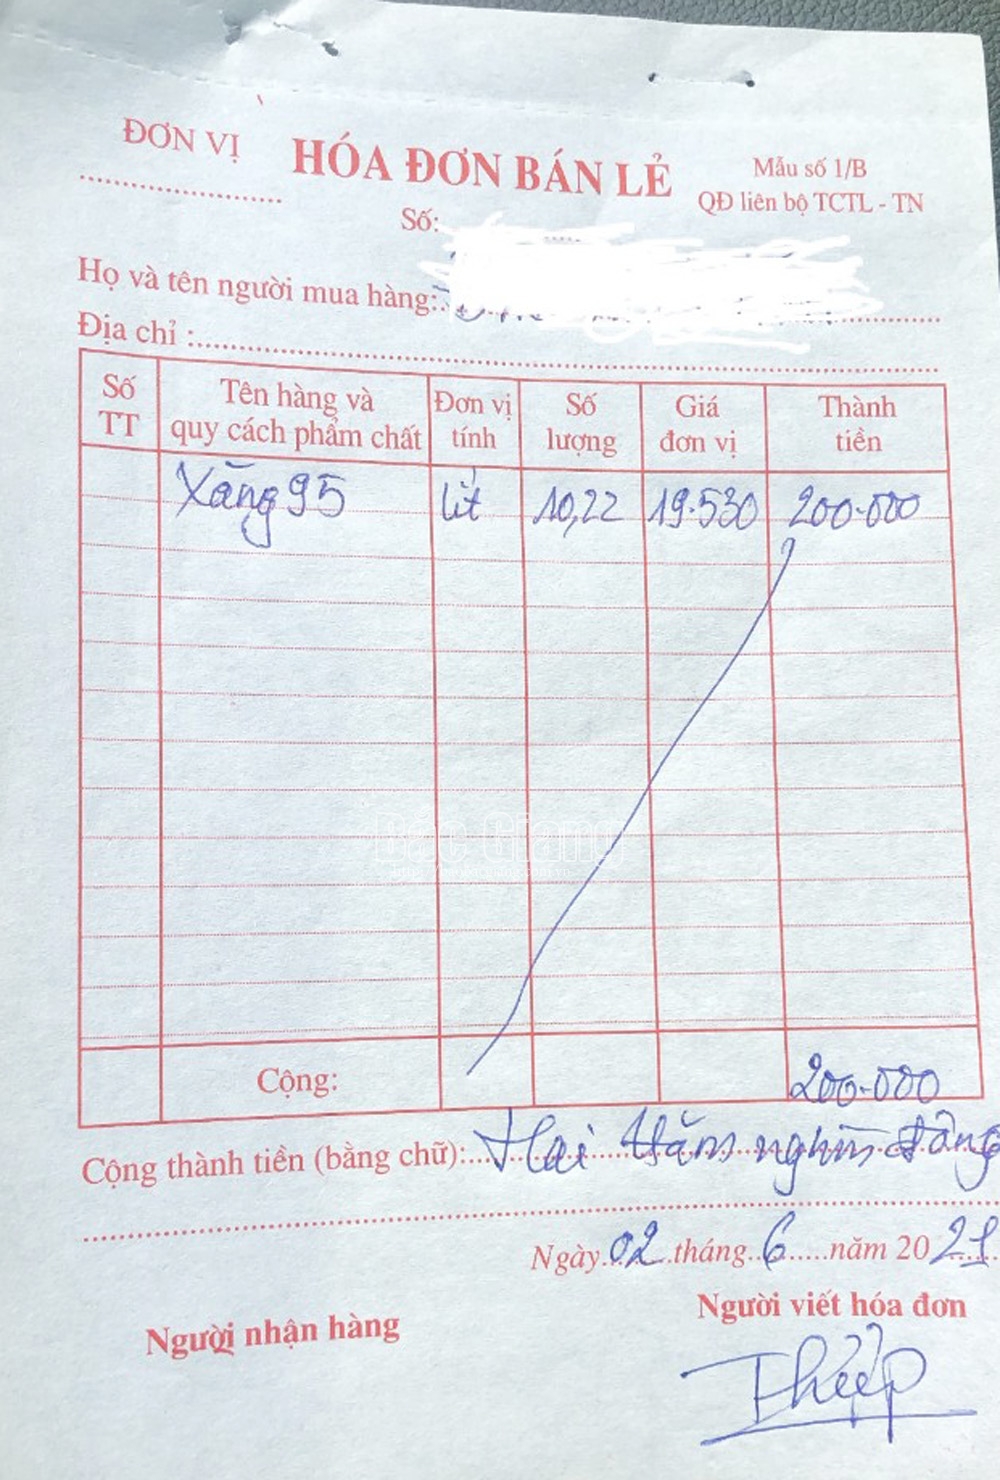 ĐƠN VỊ
HÓA ĐƠN BÁN LẺ
Mẫu số 1/B
QĐ liên bộ TCTL - TN
Số:
Họ và tên người mua hàng:
Địa chỉ :
Số TT
Tên hàng và quy cách phẩm chất
Đơn vị tính
Số lượng
Giá đơn vị
Thành tiền
Xăng 95 lít 10,22 19.530 200.000
Bắc Giang
Cộng: 200.000
Cộng thành tiền (bằng chữ): Hai trăm nghìn đồng
Ngày 02 tháng 6 năm 2021
Người nhận hàng
Người viết hóa đơn